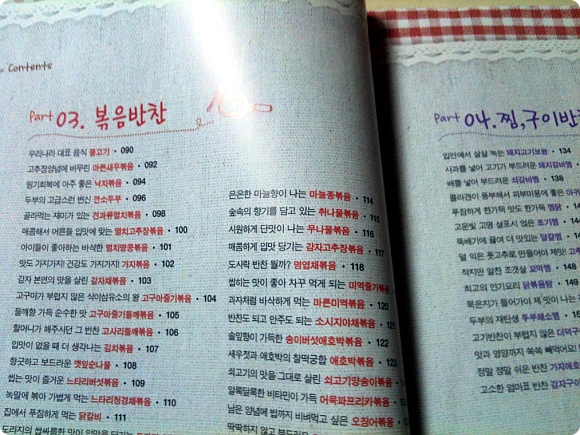 Contents
Part 03. 볶음반찬
우리나라 대표 음식 불고기 • 090
고추장양념에 버무린 마른새우볶음 • 092
원기회복에 아주 좋은 낙지볶음 • 094
두부의 고급스런 변신 깐소두부 • 096
골라먹는 재미가 있는 견과류멸치볶음 • 098
매콤해서 어른들 입맛에 맞는 멸치고추장볶음 • 100
아이들이 좋아하는 바삭한 멸치땅콩볶음 • 101
맛도 가지가지! 건강도 가지가지! 가지볶음 • 102
감자 본연의 맛을 살린 감자채볶음 • 103
고구마가 부럽지 않은 식이섬유소의 왕 고구마줄기볶음 • 104
들깨향 가득 순수한 맛 고구마줄기들깨볶음 • 105
할머니가 해주시던 그 반찬 고사리들깨볶음 • 106
입맛이 없을 때 더 생각나는 김치볶음 • 107
향긋하고 보드라운 깻잎순나물 • 108
씹는 맛이 즐거운 느타리버섯볶음 • 109
녹말에 볶아 가볍게 먹는 느타리청경채볶음 •
집에서 푸짐하게 먹는 닭갈비 • 111
도라지의 쌉싸름한 맛이 입맛을 당기는
은은한 마늘향이 나는 마늘종볶음 • 114
숲속의 향기를 담고 있는 취나물볶음 • 115
시원하게 단맛이 나는 무나물볶음 • 116
매콤하게 입맛 당기는 감자고추장볶음 • 117
도시락 반찬 뭘까? 명엽채볶음 • 118
씹히는 맛이 좋아 자꾸 먹게 되는 미역줄기볶음
과자처럼 바삭하게 먹는 마른미역볶음 • 120
반찬도 되고 안주도 되는 소시지야채볶음 • 121
솔잎향이 가득한 송이버섯애호박볶음 • 122
새우젓과 애호박의 찰떡궁합 애호박볶음 • 123
쇠고기의 맛을 그대로 살린 쇠고기양송이볶음
알록달록한 비타민이 가득 어묵파프리카볶음
남은 양념에 밥까지 비벼먹고 싶은 오징어볶음
딱딱하지 않고 부드러운
Part 04. 찜,구이반찬
입안에서 살살 녹는 돼지고기보쌈 • 134
사과를 넣어 고기가 부드러운 돼지갈비찜
배를 넣어 부드러운 쇠갈비찜 • 138
콜라겐이 풍부해서 피부미용에 좋은
푸짐하게 한가득 맛도 한가득 찜닭 •
고운빛 고명 살포시 얹은 조기찜 •
뚝배기에 끓여 더 맛있는 달걀찜 •
덜 익은 풋고추로 만들어야 제
작지만 알찬 조갯살 꼬막찜 •
최고의 인기요리 닭볶음탕 •
묵은지가 들어가야 제 맛이 나는
두부의 재탄생 두부채소찜 •
고기반찬이 부럽지 않은 더덕구이
맛과 영양까지 쏙쏙 빼먹어요!
정말 정말 쉬운 반찬 가지애호
고소한 엄마표 반찬 감자구이